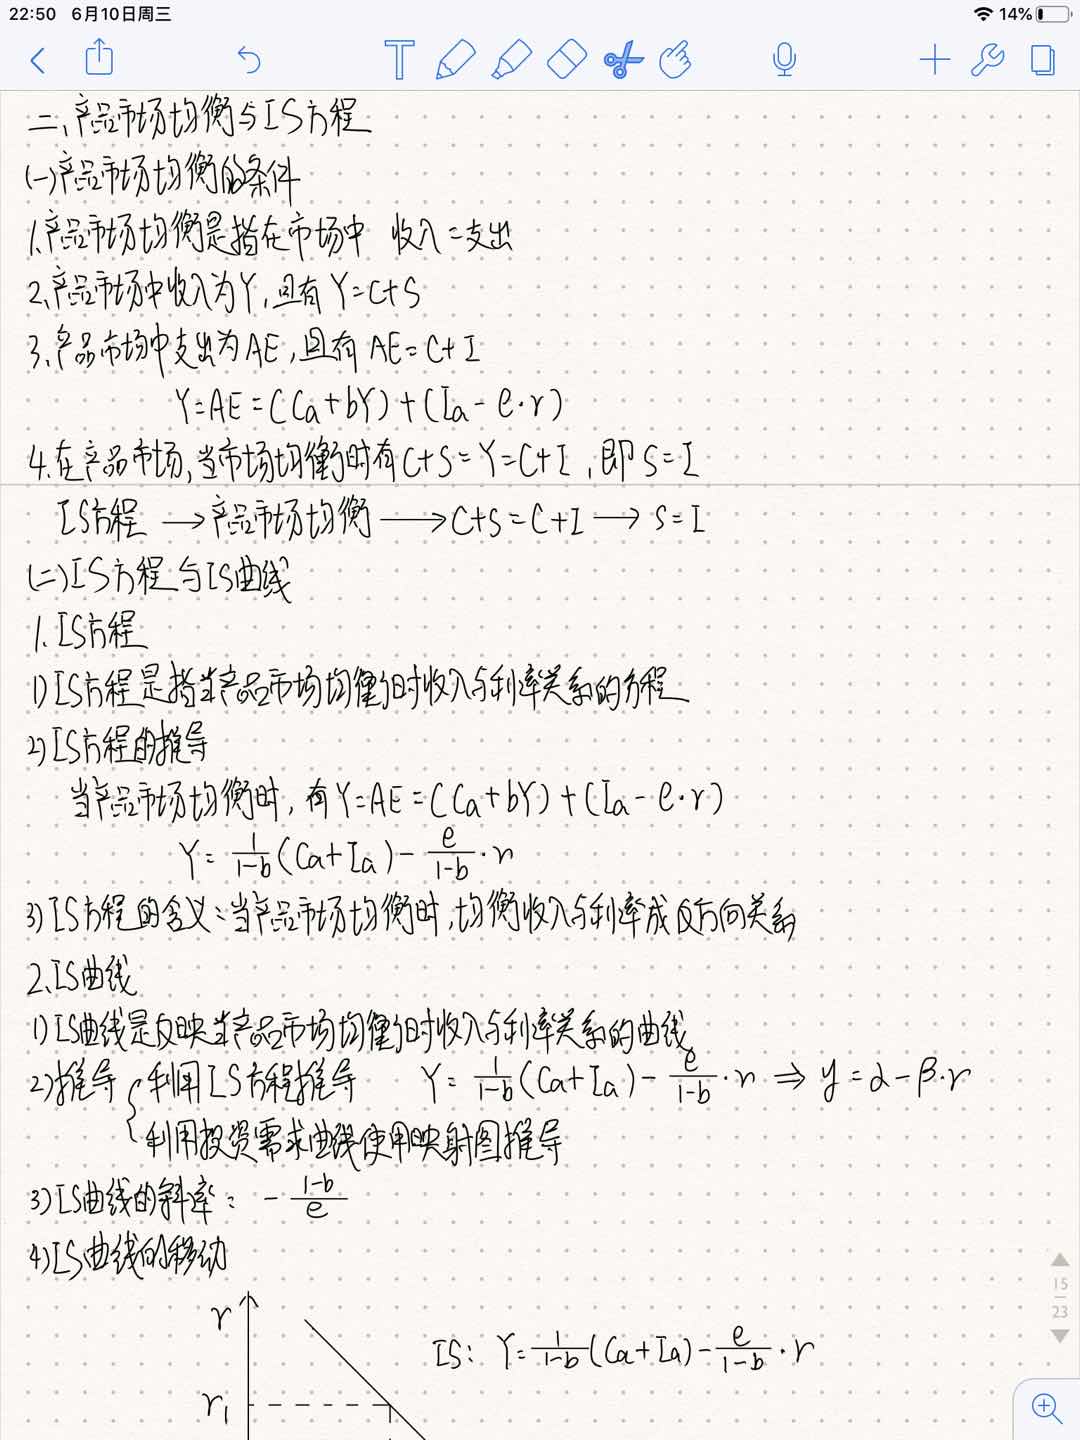 22:50 6月10日周三
14%
二、产品市场均衡与IS方程
(一)产品市场均衡的条件
1.产品市场均衡是指在市场中 收入=支出
2.产品市场中收入为Y,且有Y=C+S
3.产品市场中支出为AE,且有AE=C+I
Y=AE=(Ca+bY)+(Ia-e·r)
4.在产品市场,当市场均衡时有C+S=Y=C+I,即S=I
IS方程→产品市场均衡→C+S=C+I→S=I
(二)IS方程与IS曲线
1.IS方程
1)IS方程是指当产品市场均衡时收入与利率关系的方程
2)IS方程的推导
当产品市场均衡时,有Y=AE=(Ca+bY)+(Ia-e·r)
Y=1/(1-b)(Ca+Ia)-e/(1-b)·r
3)IS方程的含义:当产品市场均衡时,均衡收入与利率成反方向关系
2.IS曲线
1)IS曲线是反映当产品市场均衡时收入与利率关系的曲线
2)推导{利用IS方程推导 Y=1/(1-b)(Ca+Ia)-e/(1-b)·r⇒y=α-β·r
利用投资需求曲线使用映射图推导
3)IS曲线的斜率:-(1-b)/e
4)IS曲线的移动
15
23
r
IS: Y=1/(1-b)(Ca+Ia)-e/(1-b)·r
r1